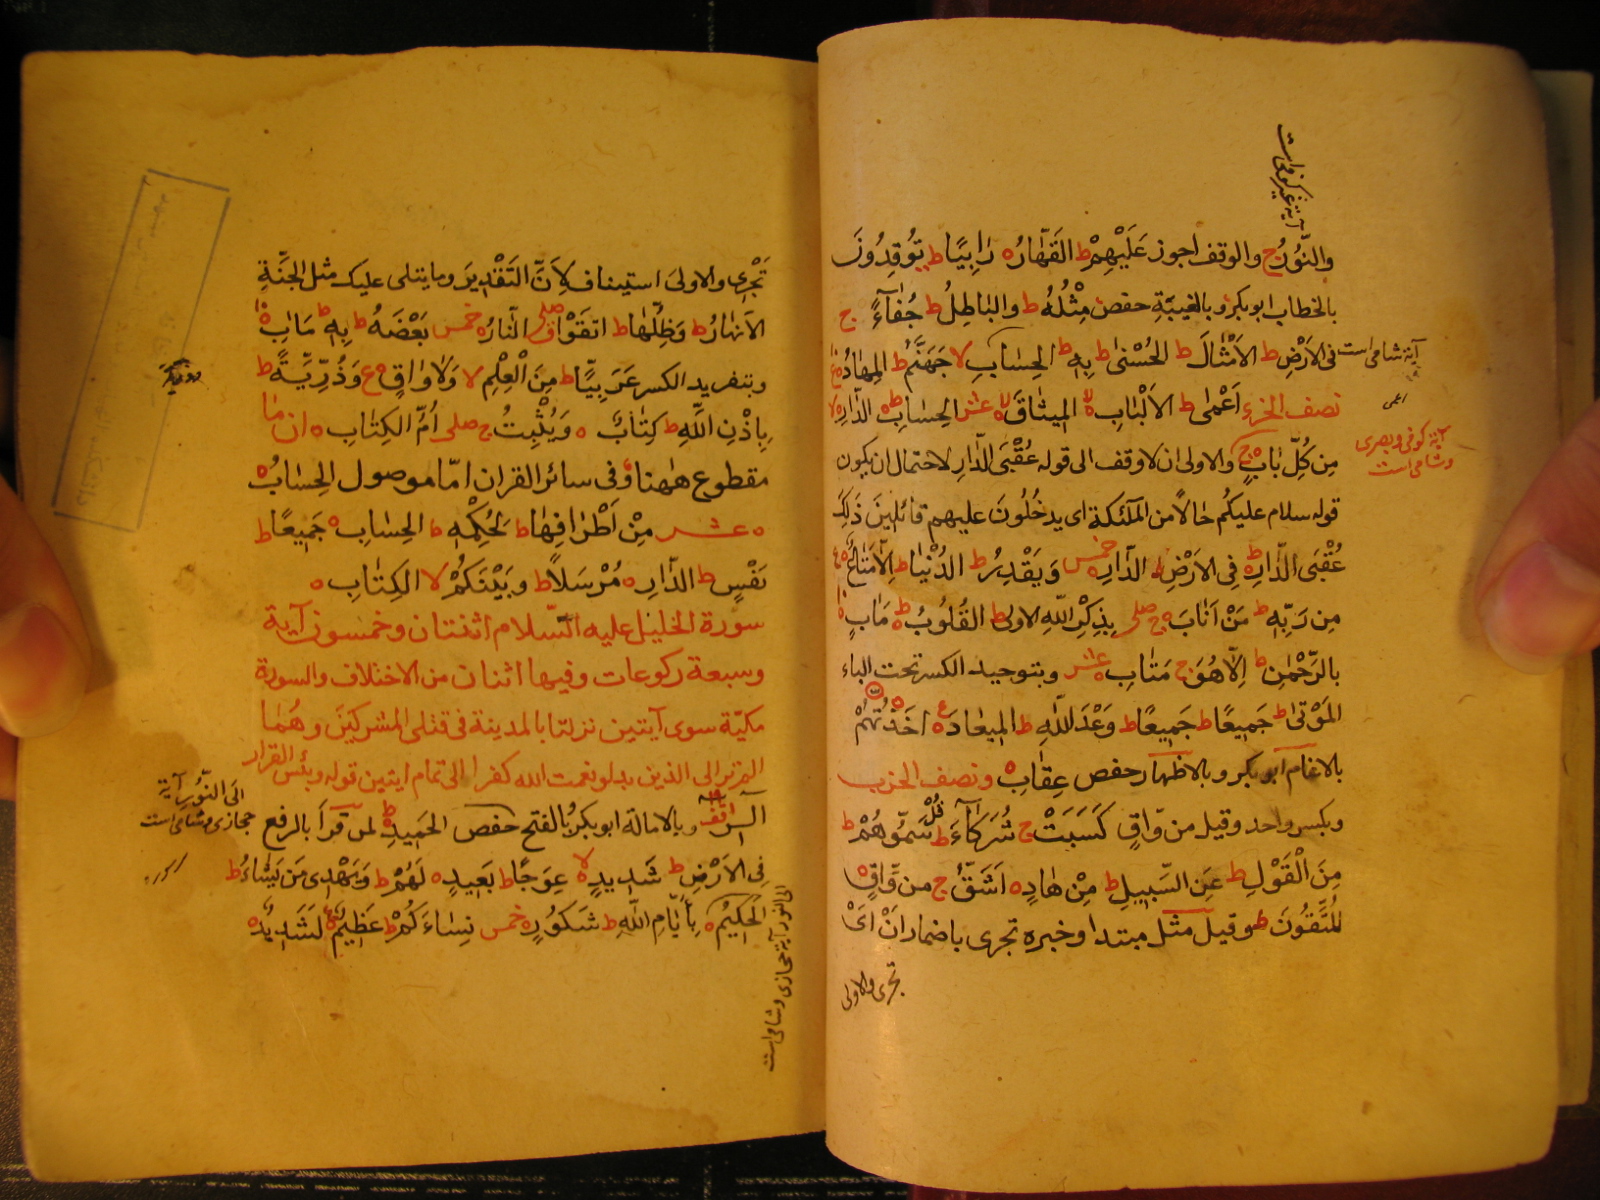 آية غير كوفي است
والنّورُ ج والوقف اجوز عَلَيْهِمْ ط القَهّارُ ه رَابِيًا ط تُوقِدُونَ
بالخطاب ابوبكر وبالغيبَة حفص مِثْلُهُ ط والبَاطِلُ ط جُفَآءً ج
فى الاَرْضِ ط الاَمْثَالَ ط الحُسْنىٰ ط بِهٖ ط الحِسَابِ لا جَهَنَّمُ ط المِهَادُ ه ع
آية شامى است
نصف الجزء اَعْمٰى ط الاَلْبَابِ لا المِيثَاقَ لا عشر الحِسَابِ ط الدَّارِ لا
اعمى
آية كوفى وبصرى
وشامى است
مِن كُلِّ بَابٍ ج والاولى ان لا وقف الى قوله عُقْبَى الدَّارِ لاحتمال ان يكون
قوله سلام عليكم حَالاً من الملٰئكة اى يدخُلُونَ عليهم قائلينَ ذلِكَ
عُقْبَى الدَّارِ ط فِى الاَرْضِ لا الدَّارِ ه خمس وَيَقْدِرُ ط الدُّنْيَا ط اِلّاَ مَتَاعٌ ه ع
مِن رَبِّهٖ ط مَنْ اَنَابَ ه ج صلى بِذِكْرِ اللهِ الاولى ط القُلُوبُ ه ط مَاٰبٍ ه
بالرَّحْمٰنِ ط اِلّاَ هُوَ ج مَتَابِ ه عشر وبتوحيد الكسر تحت الباء
المَوْتىٰ ط جَمِيعًا ط جَمِيعًا ط وَعْدَ اللّٰهِ ط المِيعَادَ ه ع اَخَذْتُهُمْ
بالادغام ابوبكر وبالاظهار حفص عِقَابِ ه ونصف الحزب
وبكسر واحد وقيل من وَّاقٍ كَسَبَتْ ج شُرَكَآءَ ط قُلْ سَمُّوهُمْ ط
مِنَ الْقَوْلِ ط عَنِ السَّبِيلِ ط مِنْ هَادٍ ه اَشَقُّ ج من وَّاقٍ ه
المُتَّقُونَ ط وقيل مثل مبتدا وخبره تجرى باضمار اَنْ اَىْ
تجرى والاولى
تَجْرِى والاولىَ استيناف لاَنَّ التَقْدِيرَ وما يتلى عليك مثل الجَنَّةِ
الاَنهَارُ ط وَظِلُّهَا ط اتقَوْا ق صلى النَّارُ ه خمس بَعْضَهُ ط بِهٖ ط مَاٰبِ ه
وبتفريد الكسر عَرَبِيًّا ط مِنَ الْعِلْمِ لا وَلاَ وَاقٍ ه ع وَذُرِّيَّةً ط
بِاِذْنِ اللّٰهِ ط كِتَابٌ ه وَيُثْبِتُ ج صلى اُمُّ الكِتَابِ ه ان ما
مقطوع هٰهنا وفى سائر القران امّا موصول الحِسَابُ ه
ه عشر مِنْ اَطْرَافِهَا ط لِحُكْمِهٖ ط الحِسَابِ ه جَمِيعًا ط
نَفْسٍ ط الدَّارِ ه مُرْسَلاً ط وبَيْنَكُمْ لا الكِتَابِ ه
سورة الخليل عليه السّلام اثنتان وخمسون آية
وسبعة ركوعات وفيها اثنان من الاختلاف والسورة
مكيّة سوى آيتين نزلتا بالمدينة فى قتلى المشركين وهُما
الم تر الى الذين بدلو نعمت الله كفرا الى تمام ايتين قوله وبئس القرار
الٓرٰ قف وبالامالة ابوبكر بالفتح حفص الحَمِيدِ ه لمن قرأ بالرفع
الى النّور آية
حجازى وشامى است
فِى الاَرْضِ ط شَدِيدٍ ه لا عِوَجًا ط بَعِيدٍ ه لَهُمْ ط وَيَهْدِى مَن يَشَاءُ ط
الحَكِيمُ ه بِاَيَّامِ اللّٰهِ ط شَكُورٍ ه خمس نِسَاءَكُمْ ط عَظِيمٌ ه ع لَشَدِيدٌ ه
الى النور آية حجازى وشامى است